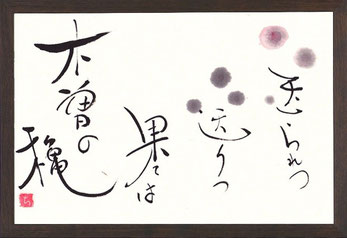 送られつ
送りつ
果ては
木曽の穐